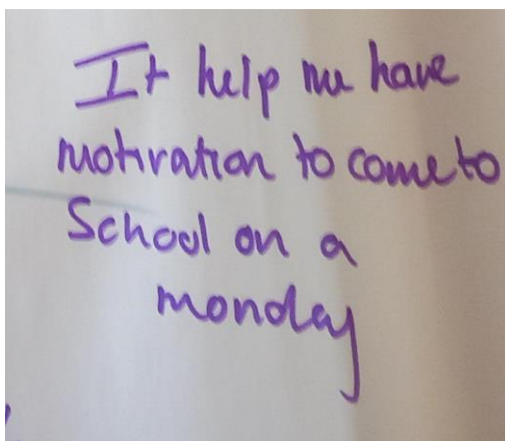 It help me have
motivation to come to
School on a
monday